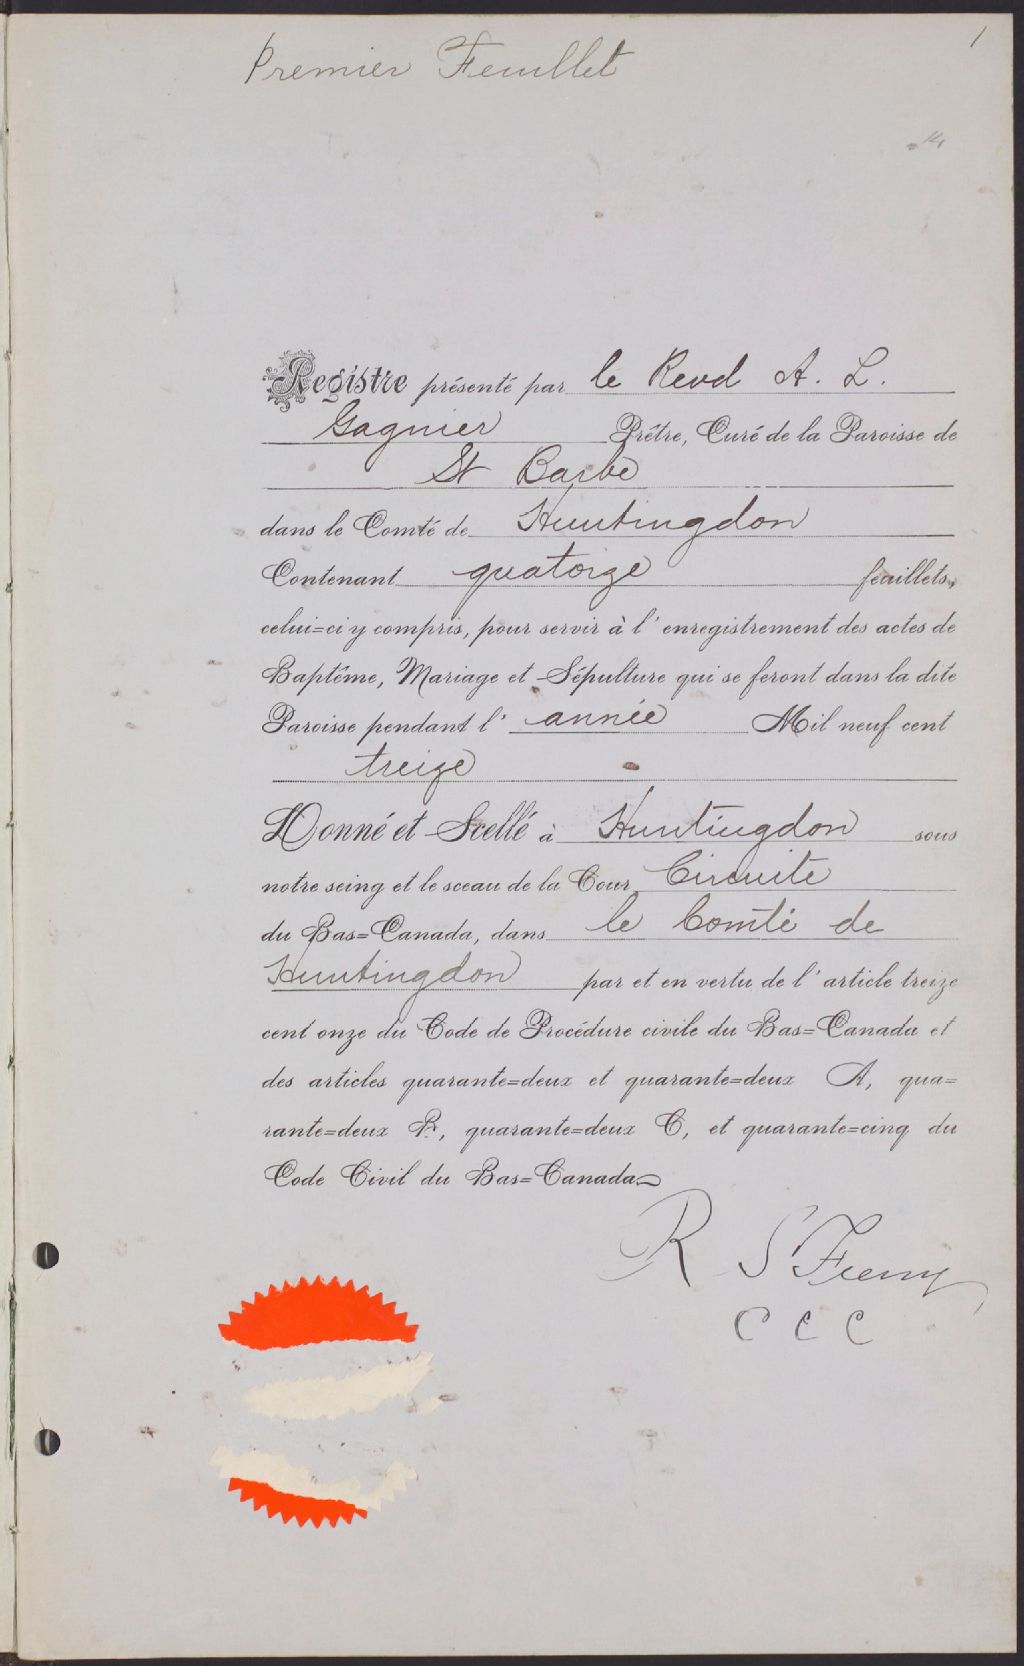 1
Premier Feuillet
14
Registre présenté par le Revd A. L.
Gagnier Prêtre, Curé de la Paroisse de
St Barbe
dans le Comté de Huntingdon
Contenant quatorze feuillets,
celui=ci y compris, pour servir à l'enregistrement des actes de
Baptême, Mariage et Sépulture qui se feront dans la dite
Paroisse pendant l'année Mil neuf cent
treize
Donné et Scellé à Huntingdon sous
notre seing et le sceau de la Cour Circuite
du Bas=Canada, dans le Comté de
Huntingdon par et en vertu de l'article treize
cent onze du Code de Procédure civile du Bas=Canada et
des articles quarante=deux et quarante=deux A, qua=
rante=deux B, quarante=deux C, et quarante=cinq du
Code Civil du Bas=Canada
R S
C C C